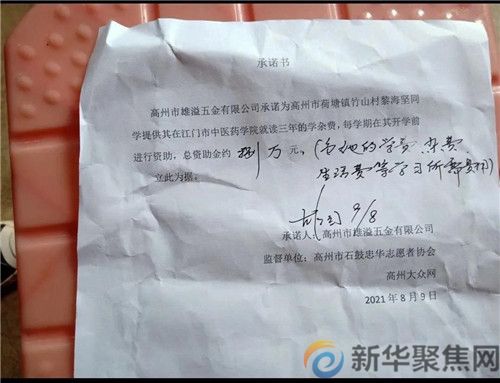 承诺书
高州市雄溢五金有限公司承诺为高州市荷塘镇竹山村黎海坚同
学提供其在江门市中医药学院就读三年的学杂费，每学期在其开学前
进行资助，总资助金约 捌万元。（包他的学费 杂费
生活费等学习所需费用）
立此为据：
9/8
承诺人：高州市雄溢五金有限公司
监督单位：高州市石鼓忠华志愿者协会
高州大众网
2021年8月9日
新华聚焦网